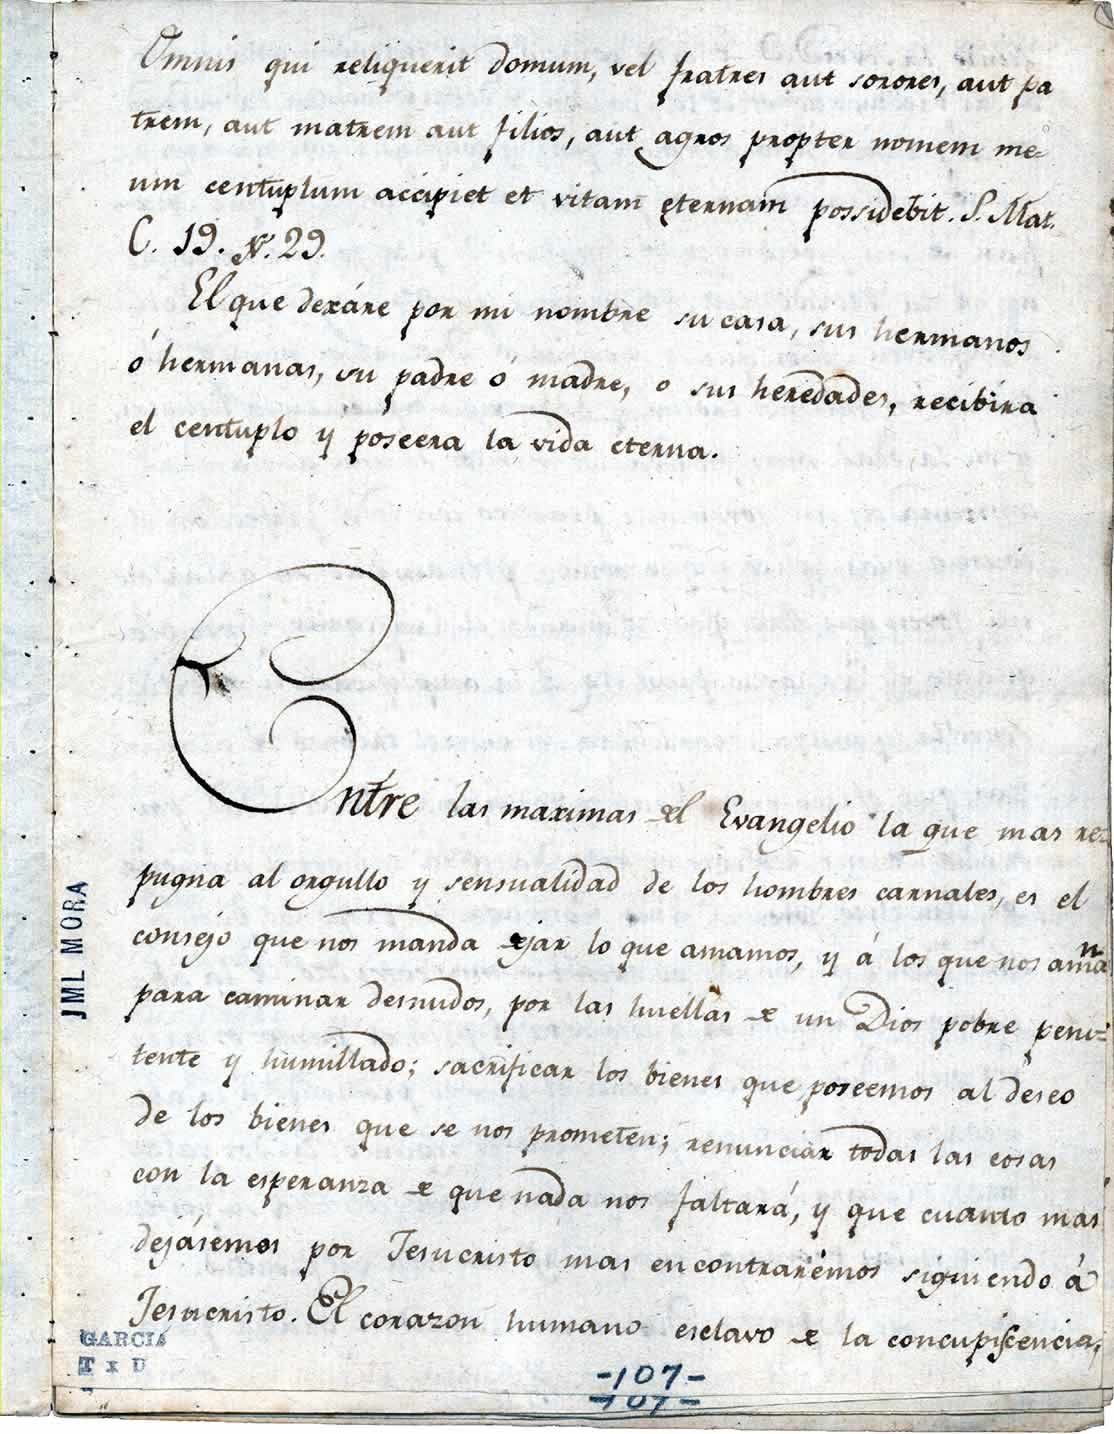 Omnis qui reliquerit domum, vel fratres aut sorores, aut pa
trem, aut matrem aut filios, aut agros propter nomem me=
um centuplum accipiet et vitam eternam possidebit. S. Mat.
C. 19. V. 29.
El que dexáre por mi nombre su casa, sus hermanos
ó hermanas, su padre ó madre, o sus heredades, recibira
el centuplo y poseera la vida eterna.
Entre las maximas del Evangelio la que mas re=
pugna al orgullo y sensualidad de los hombres carnales, es el
consejo que nos manda dejar lo que amamos, y á los que nos aman
para caminar desnudos, por las huellas de un Dios pobre peni=
tente y humillado; sacrificar los bienes que poseemos al deseo
de los bienes que se nos prometen; renunciar todas las cosas
con la esperanza de que nada nos faltará, y que cuanto mas
dejásemos por Jesucristo mas encontrarémos siguiendo á
Jesucristo. El corazon humano esclavo de la concupiscencia,
JML MORA
GARCIA
T x D
-107-
-107-